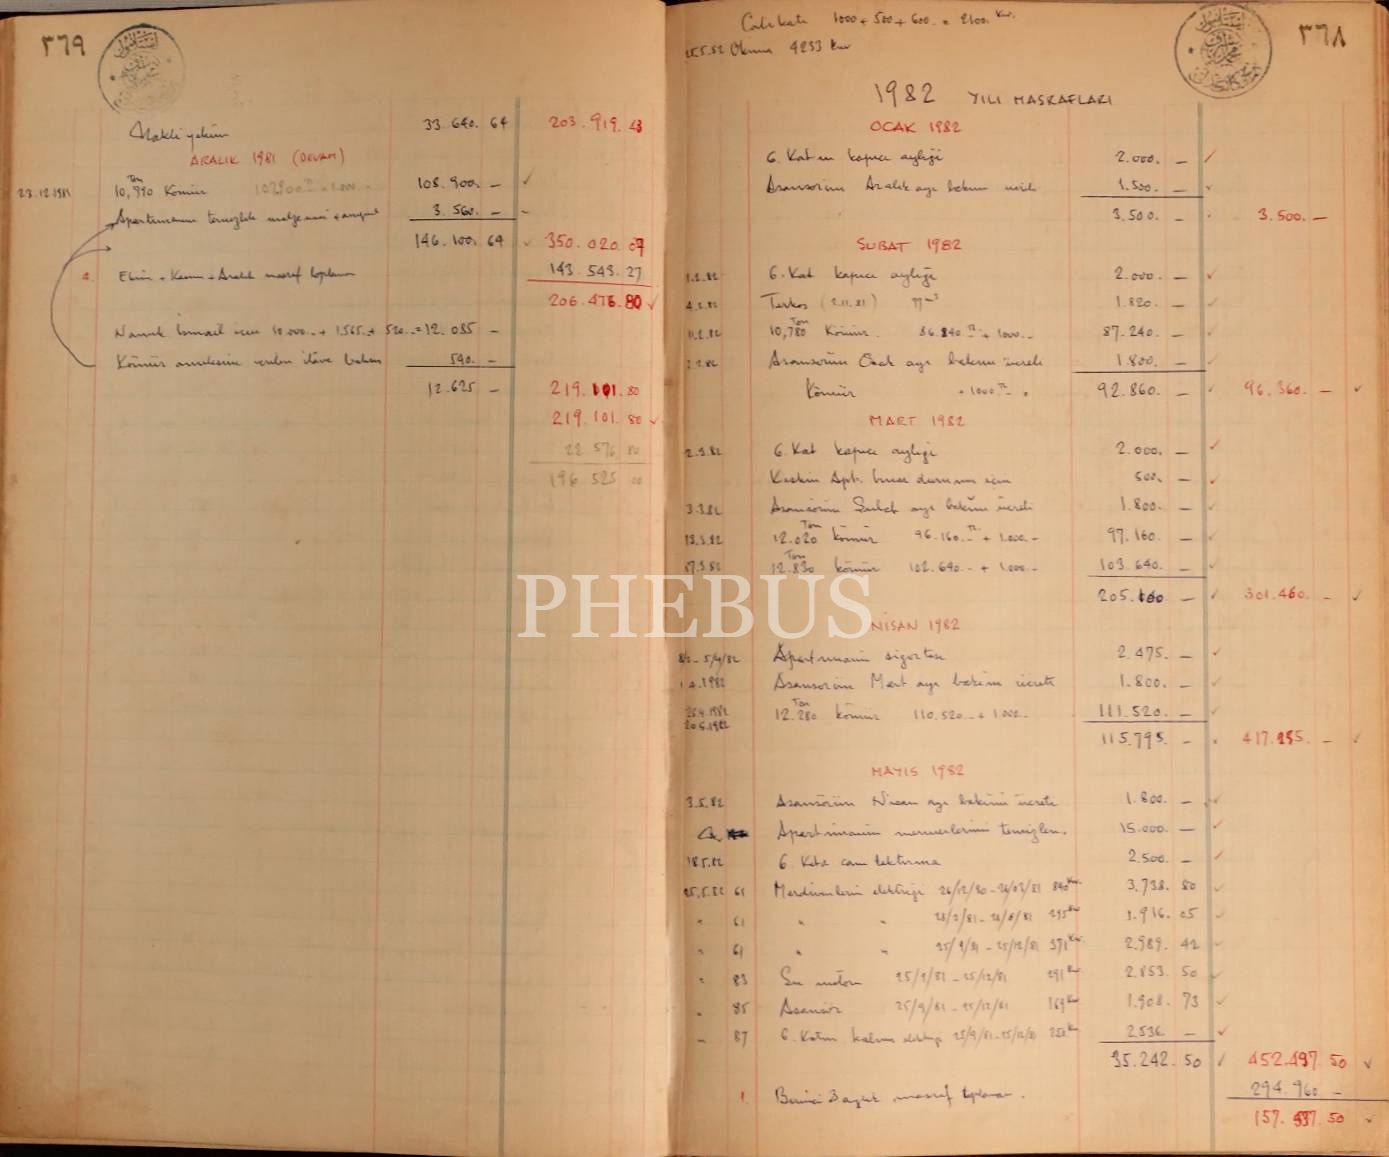 ٣٦٩
Nakli yekün 33.640.64 203.919.43
ARALIK 1981 (DEVAM)
23.12.1981 10,790 Ton Kömür 107900 TL + 1.000.- 108.900.-
Apartmanın temizlik malzemesi 3.560.-
146.100.64 350.020.07
4. Ekim + Kasım + Aralık masraf toplamı 143.543.27
206.476.80
Namık İsmail için 10.000.- + 1.565.- + 520.- = 12.085 -
Kömür verilen ilâve 540.-
12.625 - 219.101.80
219.101.80
22 576 80
196 525 00
٣٦٨
1000 + 500 + 600 = 2100. Kw.
25.5.82 Okuma 4233 Kw
1982 YILI MASRAFLARI
OCAK 1982
6. Katın kapıcı aylığı 2.000.-
Asansörün Aralık ayı bakım 1.500.-
3.500.- 3.500.-
ŞUBAT 1982
1.2.82 6. Kat kapıcı aylığı 2.000.-
4.2.82 Terkos (2.11.81) 1.820.-
11.2.82 10,780 Ton Kömür. 86.240.TL + 1000.- 87.240.-
2.2.82 Asansörün Ocak ayı bakım ücreti 1.800.-
Kömür + 1000 TL 92.860.- 96.360.-
MART 1982
2.3.82 6. Kat kapıcı aylığı 2.000.-
Keskin Apt. için 500.-
3.3.82 Asansörün Şubat ayı bakım ücreti 1.800.-
13.3.82 12.020 Ton kömür 96.160.-TL + 1.000.- 97.160.-
27.3.82 12.830 Ton kömür 102.640.- + 1.000.- 103.640.-
205.100 - 301.460.-
PHEBUS
NİSAN 1982
5/4/82 Apartmanın sigortası 2.475.-
1.4.1982 Asansörün Mart ayı bakım ücreti 1.800.-
12.280 Ton kömür 110.520.- + 1.000.- 111.520.-
115.795.- 417.255.-
MAYIS 1982
3.5.82 Asansörün Nisan ayı bakım ücreti 1.800.-
Apartmanın mermerlerini temizleme 15.000.-
18.5.82 6. Kata cam taktırma 2.500.-
25.5.82 61 Merdivenlerin elektriği 26/12/80-26/03/81 Kw. 3.738.80
" 61 " " Kw 1.916.05
" 61 " " 25/9/81-25/12/81 371 Kw. 2.989.42
" 83 Su motoru 25/9/81-25/12/81 291 Kw 2.853.50
" 85 Asansör 25/9/81-25/12/81 169 Kw 1.908.73
" 87 6. Katın elektriği 25/9/81-25/12/81 Kw 2536 -
35.242.50 452.497.50
294.960.-
1. Birinci 3 aylık masraf toplamı. 157.537.50